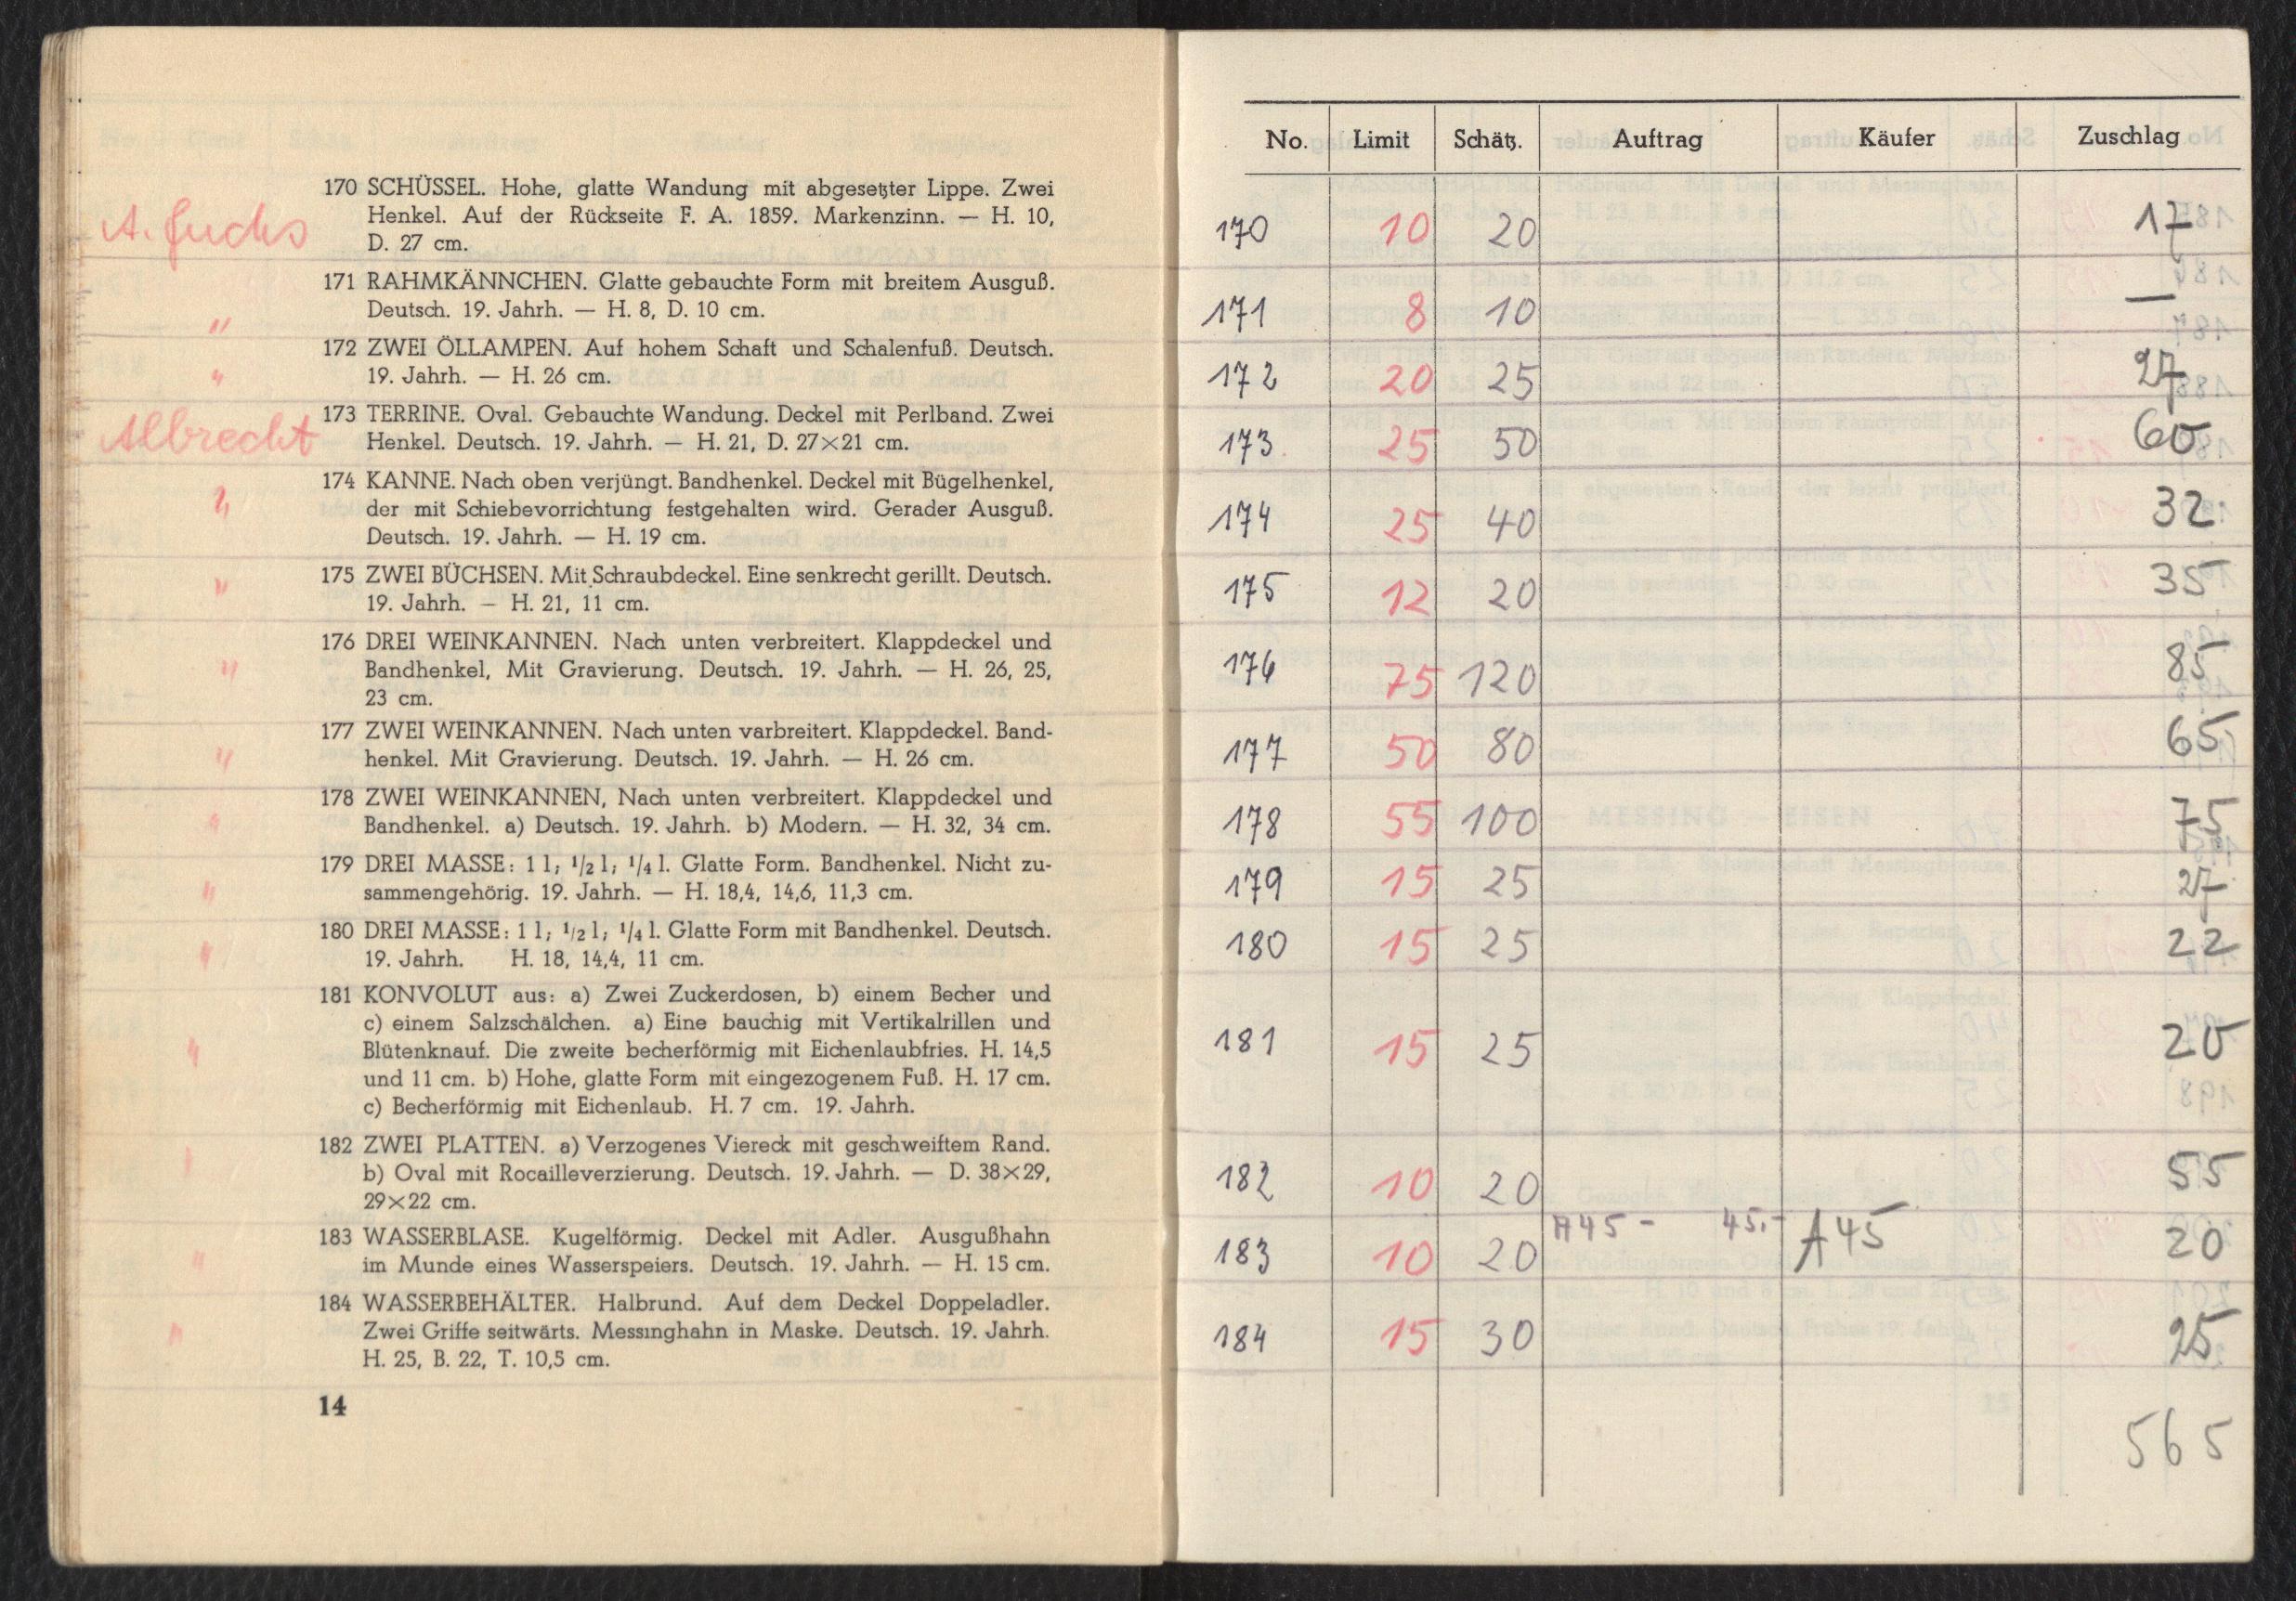 170 SCHÜSSEL. Hohe, glatte Wandung mit abgesetzter Lippe. Zwei
A. Fuchs
Henkel. Auf der Rückseite F. A. 1859. Markenzinn. — H. 10,
D. 27 cm.
171 RAHMKÄNNCHEN. Glatte gebauchte Form mit breitem Ausguß.
Deutsch. 19. Jahrh. — H. 8, D. 10 cm.
"
172 ZWEI ÖLLAMPEN. Auf hohem Schaft und Schalenfuß. Deutsch.
" 19. Jahrh. — H. 26 cm.
173 TERRINE. Oval. Gebauchte Wandung. Deckel mit Perlband. Zwei
Albrecht
Henkel. Deutsch. 19. Jahrh. — H. 21, D. 27×21 cm.
174 KANNE. Nach oben verjüngt. Bandhenkel. Deckel mit Bügelhenkel,
" der mit Schiebevorrichtung festgehalten wird. Gerader Ausguß.
Deutsch. 19. Jahrh. — H. 19 cm.
" 175 ZWEI BÜCHSEN. Mit Schraubdeckel. Eine senkrecht gerillt. Deutsch.
19. Jahrh. — H. 21, 11 cm.
176 DREI WEINKANNEN. Nach unten verbreitert. Klappdeckel und
" Bandhenkel, Mit Gravierung. Deutsch. 19. Jahrh. — H. 26, 25,
23 cm.
177 ZWEI WEINKANNEN. Nach unten varbreitert. Klappdeckel. Band-
" henkel. Mit Gravierung. Deutsch. 19. Jahrh. — H. 26 cm.
178 ZWEI WEINKANNEN, Nach unten verbreitert. Klappdeckel und
" Bandhenkel. a) Deutsch. 19. Jahrh. b) Modern. — H. 32, 34 cm.
179 DREI MASSE: 1 l; 1/2 l; 1/4 l. Glatte Form. Bandhenkel. Nicht zu-
" sammengehörig. 19. Jahrh. — H. 18,4, 14,6, 11,3 cm.
180 DREI MASSE: 1 l; 1/2 l; 1/4 l. Glatte Form mit Bandhenkel. Deutsch.
" 19. Jahrh. H. 18, 14,4, 11 cm.
181 KONVOLUT aus: a) Zwei Zuckerdosen, b) einem Becher und
c) einem Salzschälchen. a) Eine bauchig mit Vertikalrillen und
" Blütenknauf. Die zweite becherförmig mit Eichenlaubfries. H. 14,5
und 11 cm. b) Hohe, glatte Form mit eingezogenem Fuß. H. 17 cm.
c) Becherförmig mit Eichenlaub. H. 7 cm. 19. Jahrh.
182 ZWEI PLATTEN. a) Verzogenes Viereck mit geschweiftem Rand.
" b) Oval mit Rocailleverzierung. Deutsch. 19. Jahrh. — D. 38×29,
29×22 cm.
183 WASSERBLASE. Kugelförmig. Deckel mit Adler. Ausgußhahn
" im Munde eines Wasserspeiers. Deutsch. 19. Jahrh. — H. 15 cm.
184 WASSERBEHÄLTER. Halbrund. Auf dem Deckel Doppeladler.
" Zwei Griffe seitwärts. Messinghahn in Maske. Deutsch. 19. Jahrh.
H. 25, B. 22, T. 10,5 cm.
14
No. Limit Schätz. Auftrag Käufer Zuschlag
170 10 20 17
171 8 10 —
172 20 25 27
173 25 50 60
174 25 40 32
175 12 20 35
176 75 120 85
177 50 80 65
178 55 100 75
179 15 25 27
180 15 25 22
181 15 25 20
182 10 20 55
183 10 20 A45 - 45.- A45 20
184 15 30 25
565